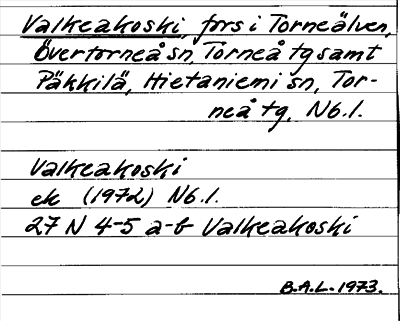 Valkeakoski, fors i Torneälven,
Övertorneå sn, Torneå tg samt
Päkkilä, Hietaniemi sn, Tor-
neå tg, Nb.l.
Valkeakoski
ek (1972) Nb.l.
27 N 4-5 a-b Valkeakoski
B.A.L. 1973.